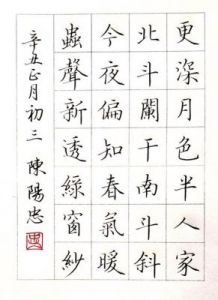 更深月色半人家
北斗闌干南斗斜
今夜偏知春氣暖
蟲聲新透綠窗紗
辛丑正月初三 陳陽忠
忠